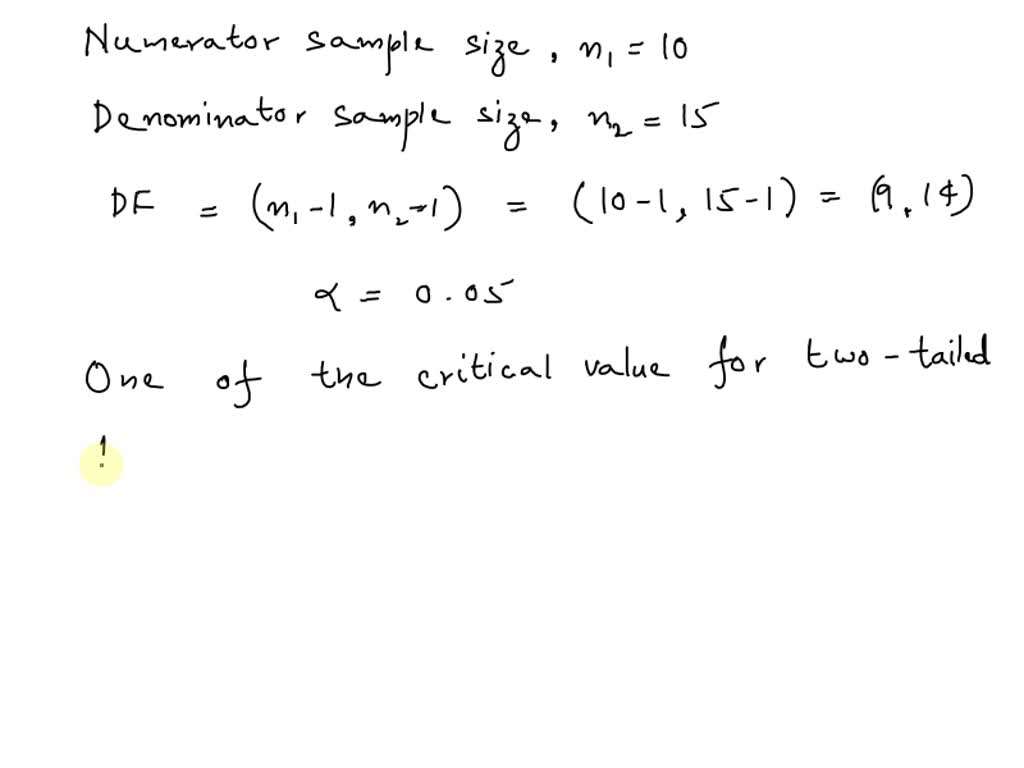 Numerator sample size, n₁ = 10
Denominator sample size, n₂ = 15
DF = (n₁-1, n₂-1) = (10-1, 15-1) = (9, 14)
α = 0.05
One of the critical value for two-tailed